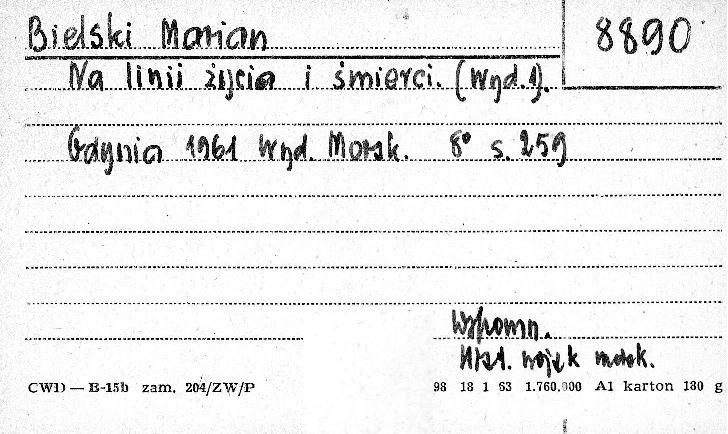 Bielski Marian
8890
Na linii życia i śmierci. (Wyd.1).
Gdynia 1961 Wyd. Morsk. 8° s. 259
Wspomn.
Hist. wojsk morsk.
CWD — B-15b zam. 204/ZW/P
98 18 1 63 1.760.000 A1 karton 180 g